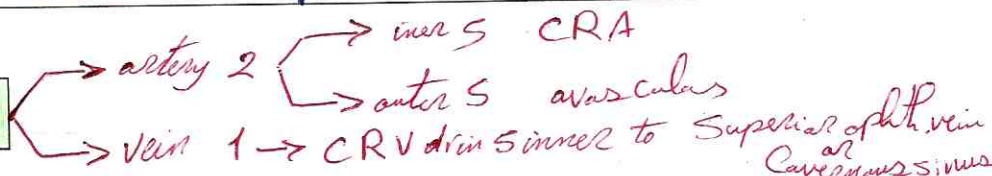 → iner 5 CRA
→ artery 2
→ outer 5 avascular
→ vein 1 → CRV drin 5 inner to Superior ophth. vein
or
Cavernous sinus